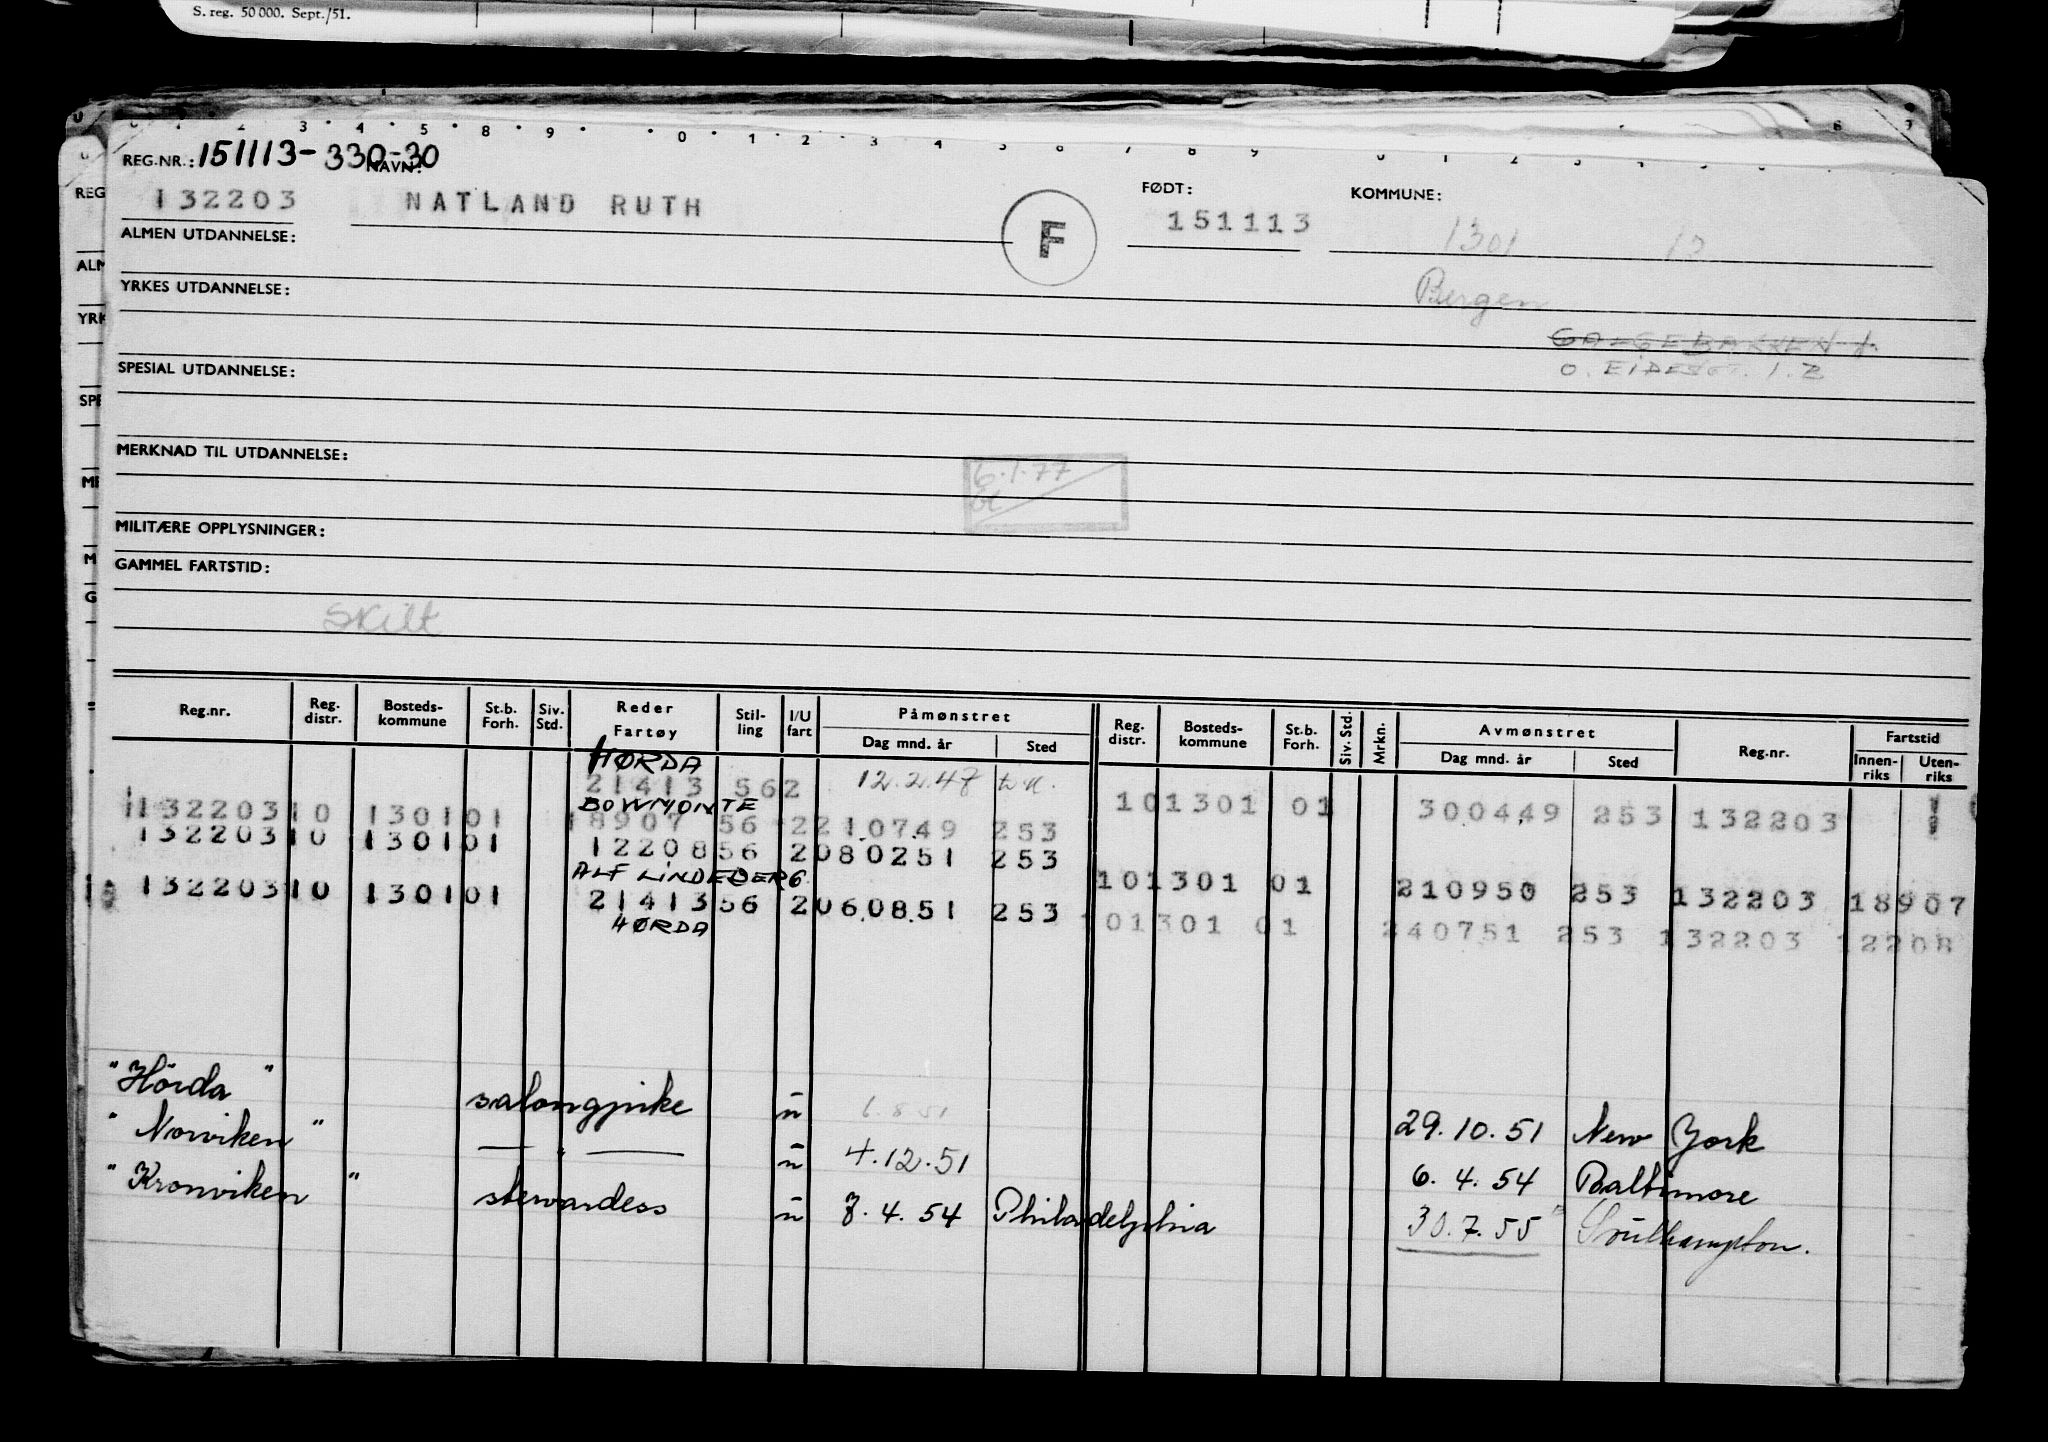 S. reg. 50 000. Sept./51.
REG.NR.: 151113-330-30
NAVN:
FØDT:
KOMMUNE:
132203 NATLAND RUTH F 151113 1301
ALMEN UTDANNELSE:
Bergen
YRKES UTDANNELSE:
GALGEBAKKEN
SPESIAL UTDANNELSE:
MERKNAD TIL UTDANNELSE:
6.1.77
MILITÆRE OPPLYSNINGER:
GAMMEL FARTSTID:
Skilt
Reg.nr. Reg. distr. Bosteds- kommune St.b. Forh. Siv. Std. Reder Fartøy Stil- ling I/U fart Påmønstret Dag mnd. år Sted Reg. distr. Bosteds- kommune St.b. Forh. Siv. Std. Mrkn. Avmønstret Dag mnd. år Sted Reg.nr. Fartstid Innen- riks Uten- riks
HØRDA
21413 562 12.2.47 101301 01 300449 253 132203
BOWMONTE
132203 10 1301 01 18907 56 2 210749 253
132203 10 1301 01 12208 56 2 080251 253 101301 01 210950 253 132203 18907
ALF LINDEBERG
132203 10 1301 01 21413 56 2 060851 253 101301 01 240751 253 132203 12208
HØRDA
"Hörda" salongpike u 6.8.51 29.10.51 New York
"Norviken" — " — u 4.12.51 6.4.54 Baltimore
"Kronviken" stewardess u 7.4.54 Philadelphia 30.7.55 Southampton.